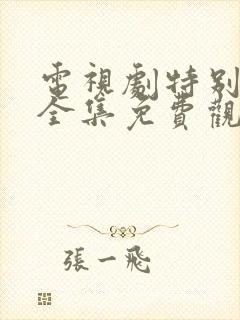 電視劇特別
全集免費觀
張一飛